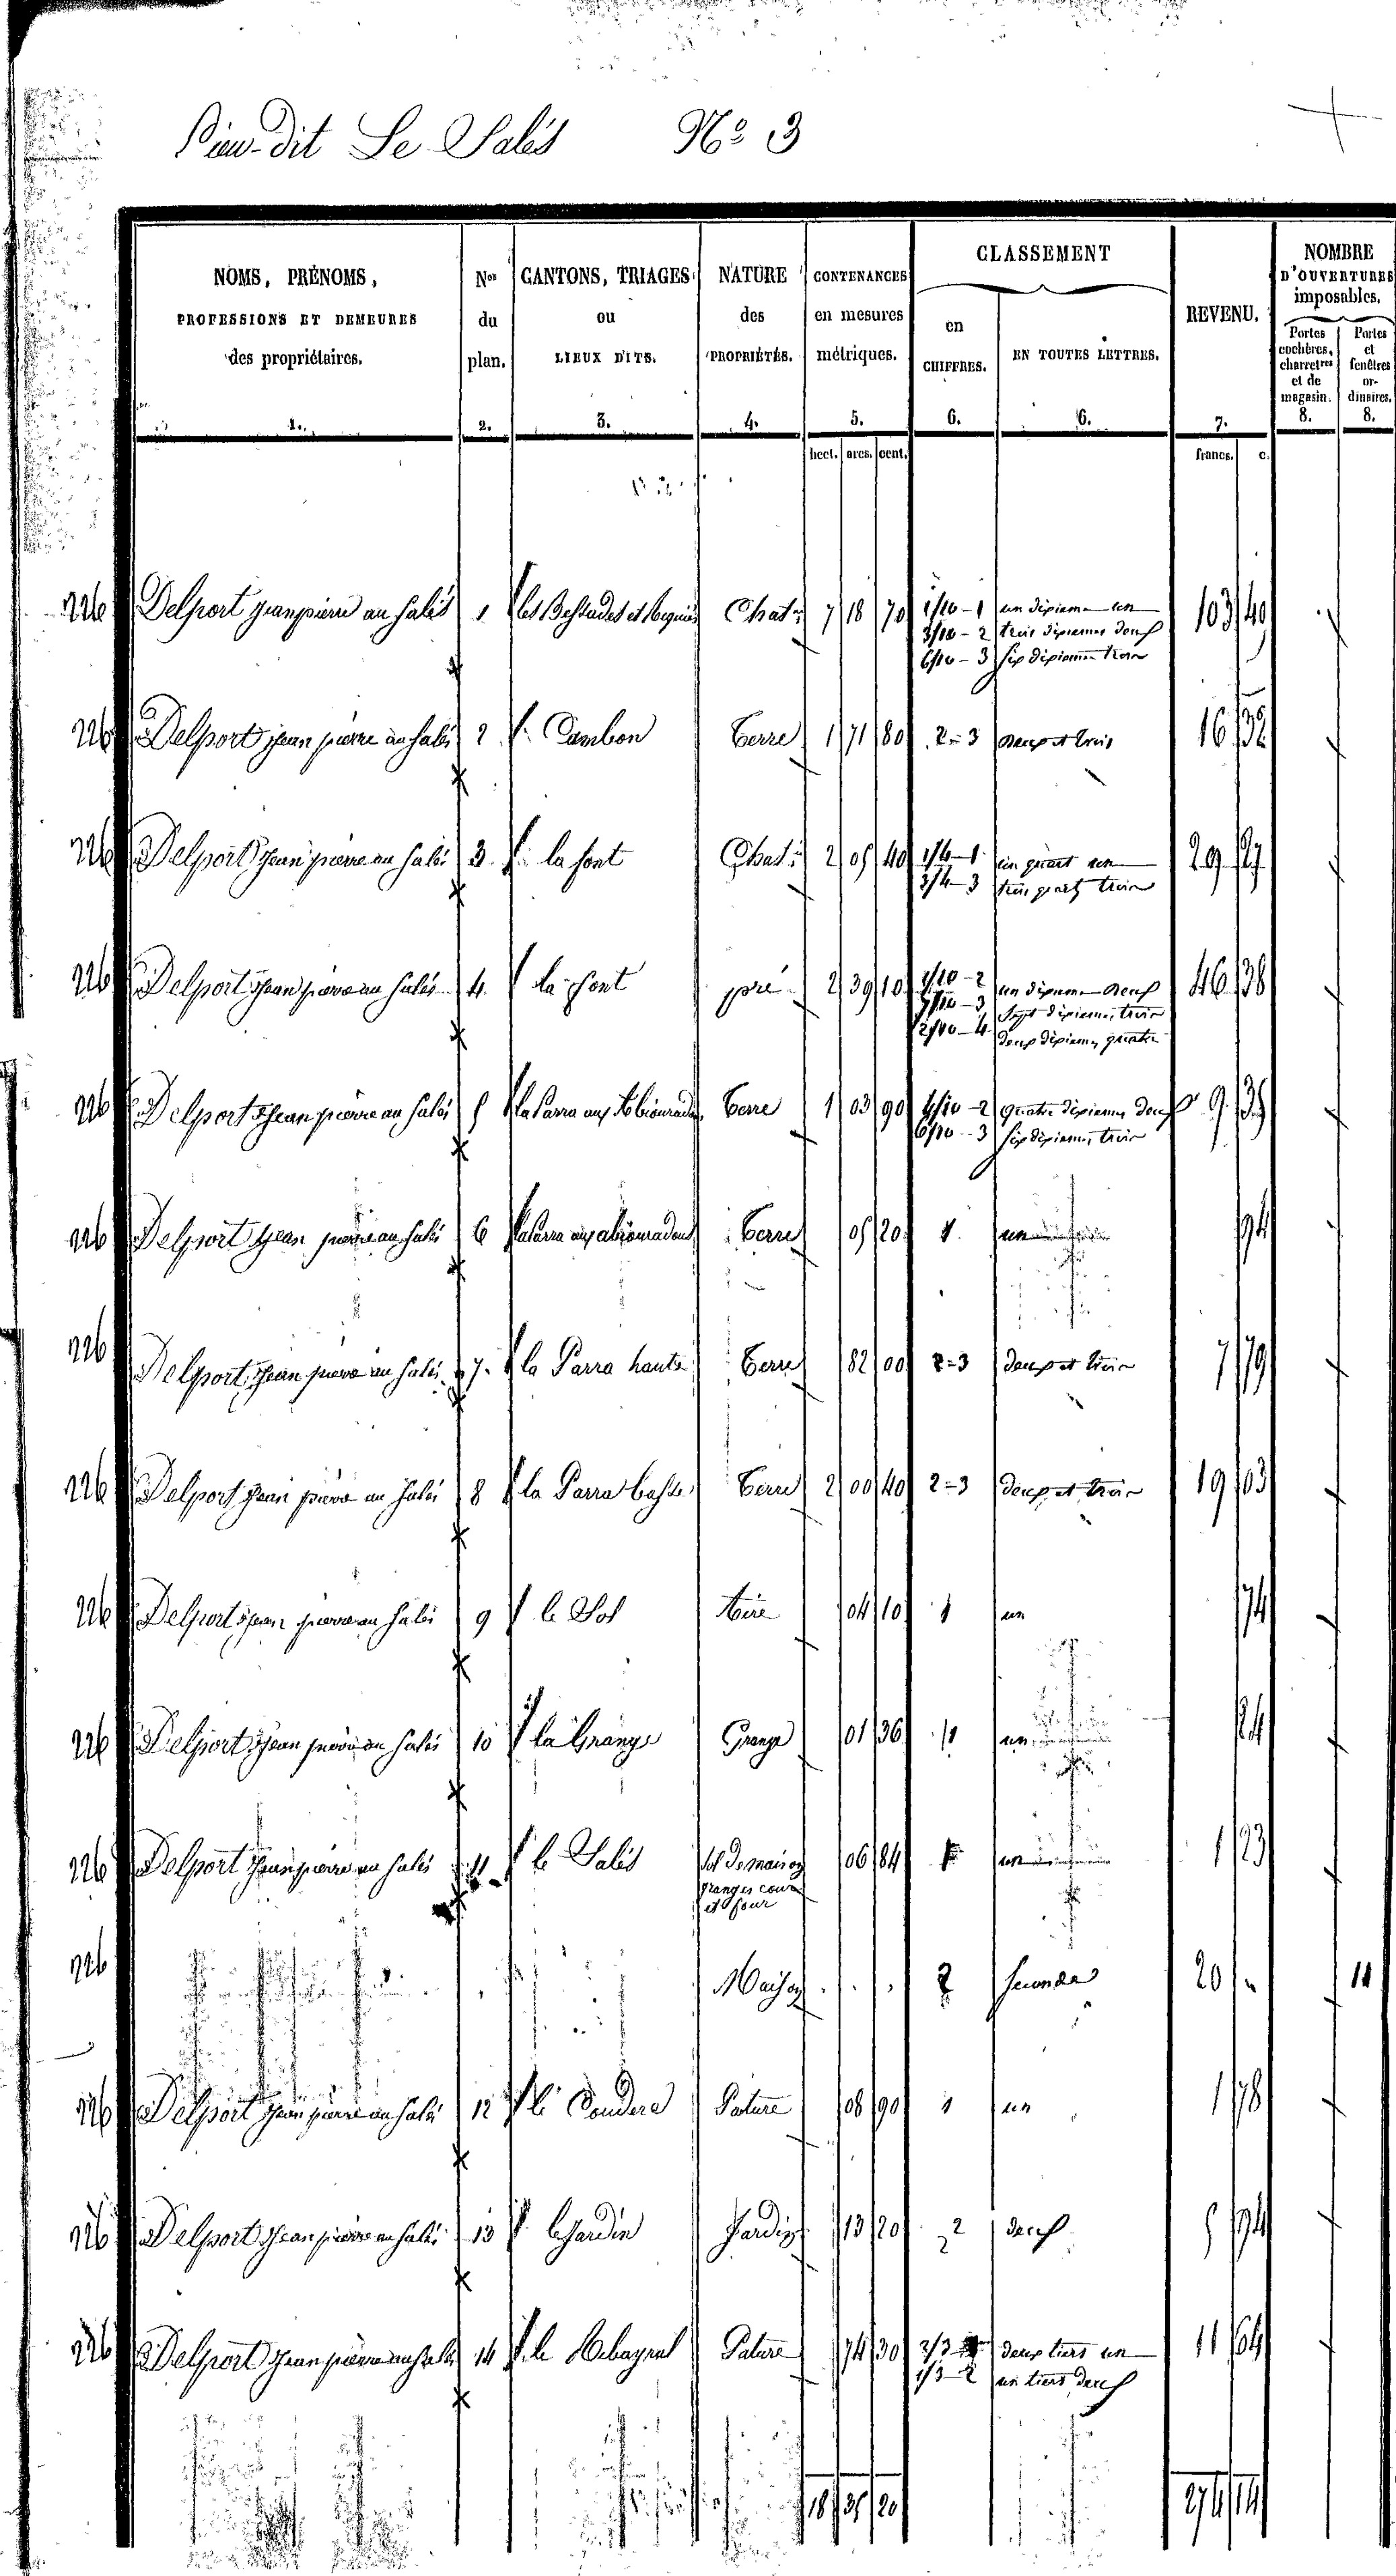 Lieu-dit Le Salès N° 3
NOMS, PRÉNOMS, PROFESSIONS ET DEMEURES des propriétaires. 1.
Nos du plan. 2.
CANTONS, TRIAGES ou LIEUX DITS. 3.
NATURE des PROPRIÉTÉS. 4.
CONTENANCES en mesures métriques. 5.
CLASSEMENT
en CHIFFRES. 6.
EN TOUTES LETTRES. 6.
REVENU. 7.
NOMBRE D'OUVERTURES imposables.
Portes cochères, charretres et de magasin. 8.
Portes et fenêtres ordinaires. 8.
hect. ares. cent. francs. c.
226 Delport jean pierre au salès 1 Chat: 7 18 70 1/10 - 1 un dixieme un 103 40
3/10 - 2 trois dixiemes deux
6/10 - 3 six dixiemes trois
226 Delport jean pierre au salès 2 Cambon terre 1 71 80 2=3 deux et trois 16 32
226 Delport jean pierre au salès 3 la font Chat: 2 05 40 1/4-1 un quart un 29 27
3/4-3 trois quarts trois
226 Delport jean pierre au salès 4 la font pré 2 39 10 1/10-2 un dixieme deux 46 38
7/10-3 sept dixiemes trois
2/10-4 deux dixiemes quatre
226 Delport jean pierre au salès 5 terre 1 03 90 4/10-2 quatre dixiemes deux 9 35
6/10-3 six dixiemes trois
226 Delport jean pierre au salès 6 terre 05 20 1 un 94
226 Delport jean pierre au salès 7 la Parra haute terre 82 00 2=3 deux et trois 7 79
226 Delport jean pierre au salès 8 la Parra basse terre 2 00 40 2=3 deux et trois 19 03
226 Delport jean pierre au salès 9 le Sol Aire 04 10 1 un 74
226 Delport jean pierre au salès 10 la Grange Grange 01 36 1 un 24
226 Delport jean pierre au salès 11 le Salès sol de maison 06 84 1 un 1 23
granges cour
et four
226 Maison 2 seconde 20 " 11
226 Delport jean pierre au salès 12 Pature 08 90 1 un 1 78
226 Delport jean pierre au salès 13 le jardin Jardin 13 20 2 deux 5 94
226 Delport jean pierre au salès 14 Pature 74 30 2/3 1 deux tiers un 11 64
1/3-2 un tiers deux
18 35 20 274 14